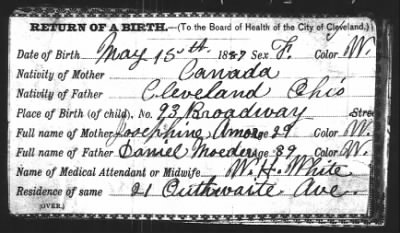 RETURN OF A BIRTH.—(To the Board of Health of the City of Cleveland.)
Date of Birth May 15th. 1887 Sex F. Color W.
Nativity of Mother Canada
Nativity of Father Cleveland Ohio
Place of Birth (of child), No. 93 Broadway Stree
Full name of Mother Josephine Amor age 29 Color W.
Full name of Father Daniel Moeder age 39 Color W.
Name of Medical Attendant or Midwife W. H. White
Residence of same 21 Outhwaite Ave.
(OVER.)